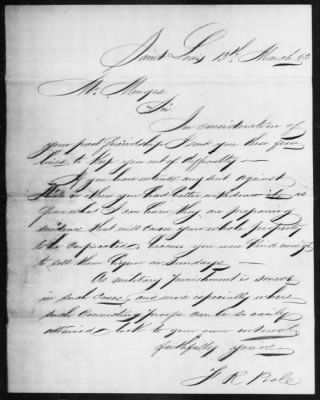 Saint Louis 13th March 62
Mr. Menges
Sir
In consideration of
your past friendship I send you these few
lines to keep you out of difficulty —
If you have entered any suit against
or than you had better withdraw it as
from what I can learn they are preparing
evidence that will cause your whole property
to be confiscated because you were kind enough
to sell them liquor on Sundays —
As military punishment is severe
in such cases, and more especially where
such convicting proofs can be so easily
attained, look to your own interest
faithfully yours
J. R. Poole